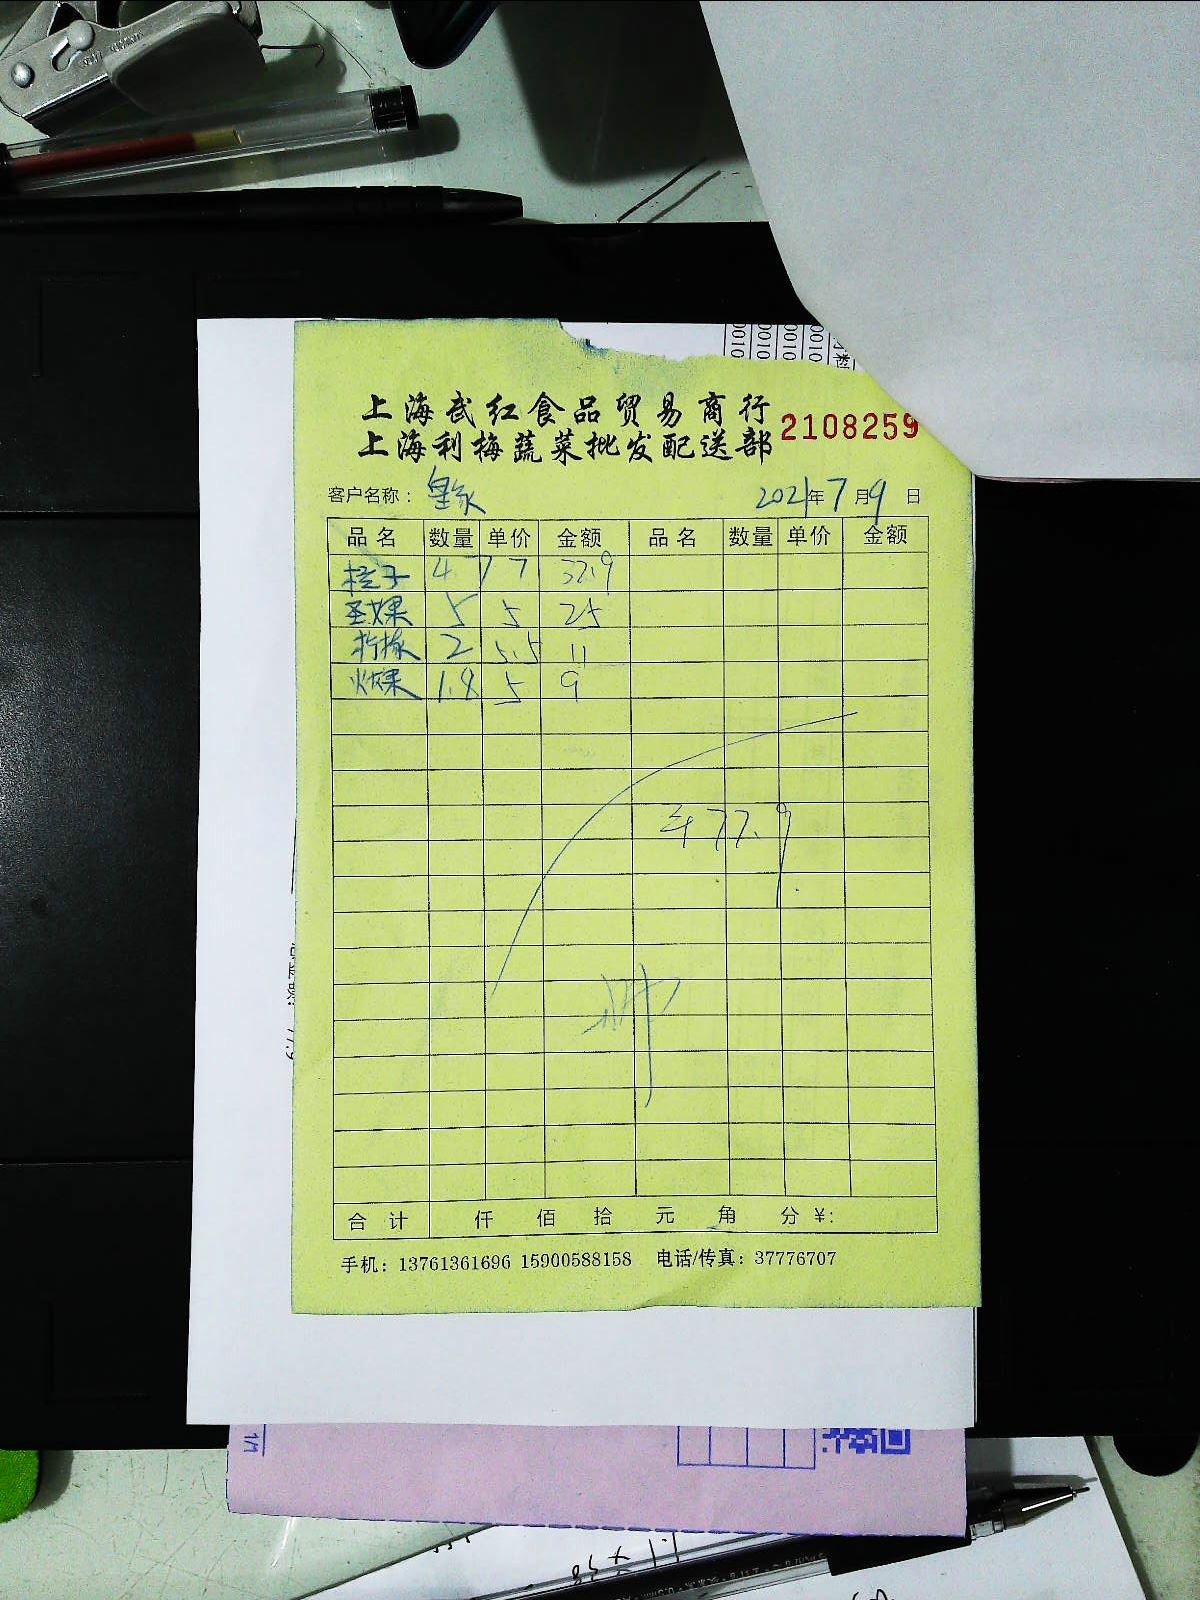 上海武红食品贸易商行
上海利梅蔬菜批发配送部
2108259
客户名称： 皇家 2021年7月9日
品名 数量 单价 金额 品名 数量 单价 金额
橙子 4.7 7 32.9
圣女果 5 5 25
柠檬 2 5.5 11
火龙果 1.8 5 9
¥77.9
合计 仟 佰 拾 元 角 分 ¥:
手机：13761361696 15900588158 电话/传真：37776707
1/1